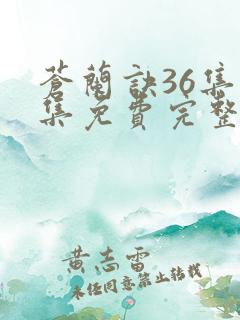 蒼蘭訣36集
集免費完整
黄志雷
未经同意禁止转载